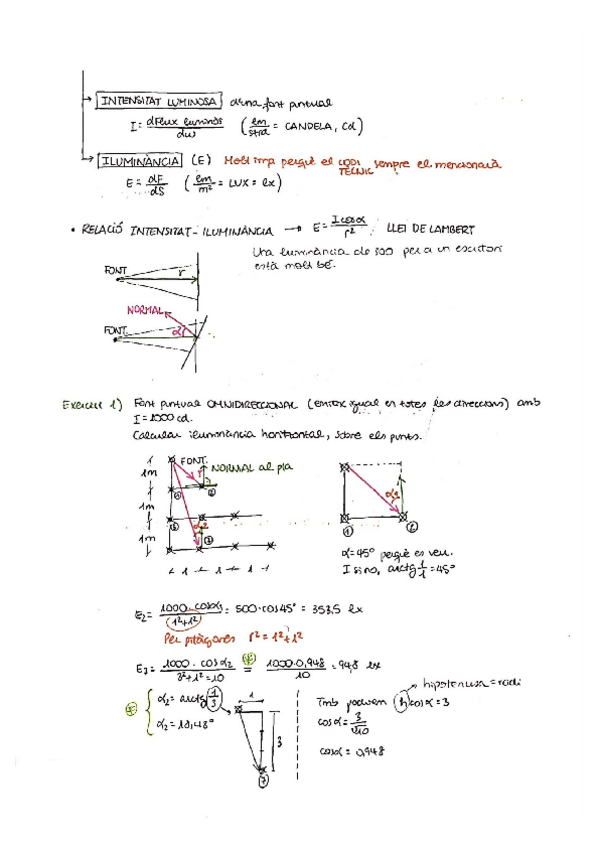 INTENSITAT LUMINOSA d'una font puntual
I = dFlux lluminós / dω (lm / strd = CANDELA, Cd)
ILUMINÀNCIA (E) Molt imp perquè el CODI TÈCNIC sempre el mencionarà
E = dF / dS (lm / m² = LUX = lx)
• RELACIÓ INTENSITAT - ILUMINÀNCIA → E = I cos α / r² LLEI DE LAMBERT
Una iluminància de 500 per a un escriptori
està molt bé.
FONT r
NORMAL
FONT α
Exercici 1) Font puntual OMNIDIRECCIONAL (emitex igual en totes les direccions) amb
I = 1000 cd.
Calcular iluminància horitzontal, sobre els punts.
FONT
NORMAL al pla
1m
1m
1m
r
α2
1 1 1
① ②
α = 45° perquè es veu.
I si no, arctg 1/1 = 45°
E2 = 1000 · cos α / 1² + 1² = 500 · cos 45° = 353,5 lx
Per pitàgores r² = 1² + 1²
E7 = 1000 · cos α2 / 3² + 1² = 10 = 1000 · 0,948 / 10 = 94,8 lx
α2 = arctg 1/3
α2 = 18,43°
1
3
⑦
hipotenusa = radi
Tmb podem h cos α = 3
cos α = 3 / √10
cos α = 0,948